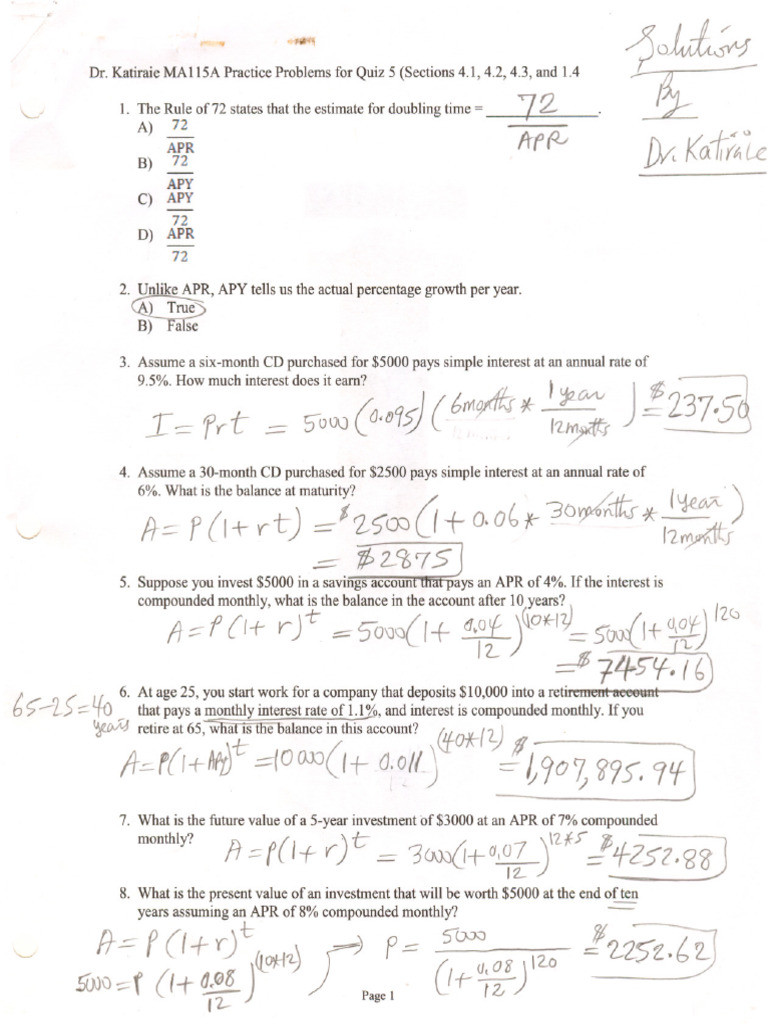 Solutions
By
Dr. Katiraie
Dr. Katiraie MA115A Practice Problems for Quiz 5 (Sections 4.1, 4.2, 4.3, and 1.4
1. The Rule of 72 states that the estimate for doubling time = 72/APR.
A) 72/APR
B) 72/APY
C) APY/72
D) APR/72
2. Unlike APR, APY tells us the actual percentage growth per year.
A) True
B) False
3. Assume a six-month CD purchased for $5000 pays simple interest at an annual rate of
9.5%. How much interest does it earn?
I = Prt = 5000(0.095)(6months * 1 year/12months) = $237.50
4. Assume a 30-month CD purchased for $2500 pays simple interest at an annual rate of
6%. What is the balance at maturity?
A = P(1+rt) = $2500(1+0.06* 30months * 1year/12months)
= $2875
5. Suppose you invest $5000 in a savings account that pays an APR of 4%. If the interest is
compounded monthly, what is the balance in the account after 10 years?
A=P(1+r)^t = 5000(1+ 0.04/12)^(10*12) = 5000(1+ 0.04/12)^120
= $7454.16
6. At age 25, you start work for a company that deposits $10,000 into a retirement account
65-25=40
years
that pays a monthly interest rate of 1.1%, and interest is compounded monthly. If you
retire at 65, what is the balance in this account?
A=P(1+APY)^t = 10000(1+0.011)^(40*12) = $1,907,895.94
7. What is the future value of a 5-year investment of $3000 at an APR of 7% compounded
monthly?
A=P(1+r)^t = 3000(1+0.07/12)^12*5 = $4252.88
8. What is the present value of an investment that will be worth $5000 at the end of ten
years assuming an APR of 8% compounded monthly?
A=P(1+r)^t
5000=P(1+0.08/12)^(10*12) → P= 5000/(1+0.08/12)^120 = $2252.62
Page 1